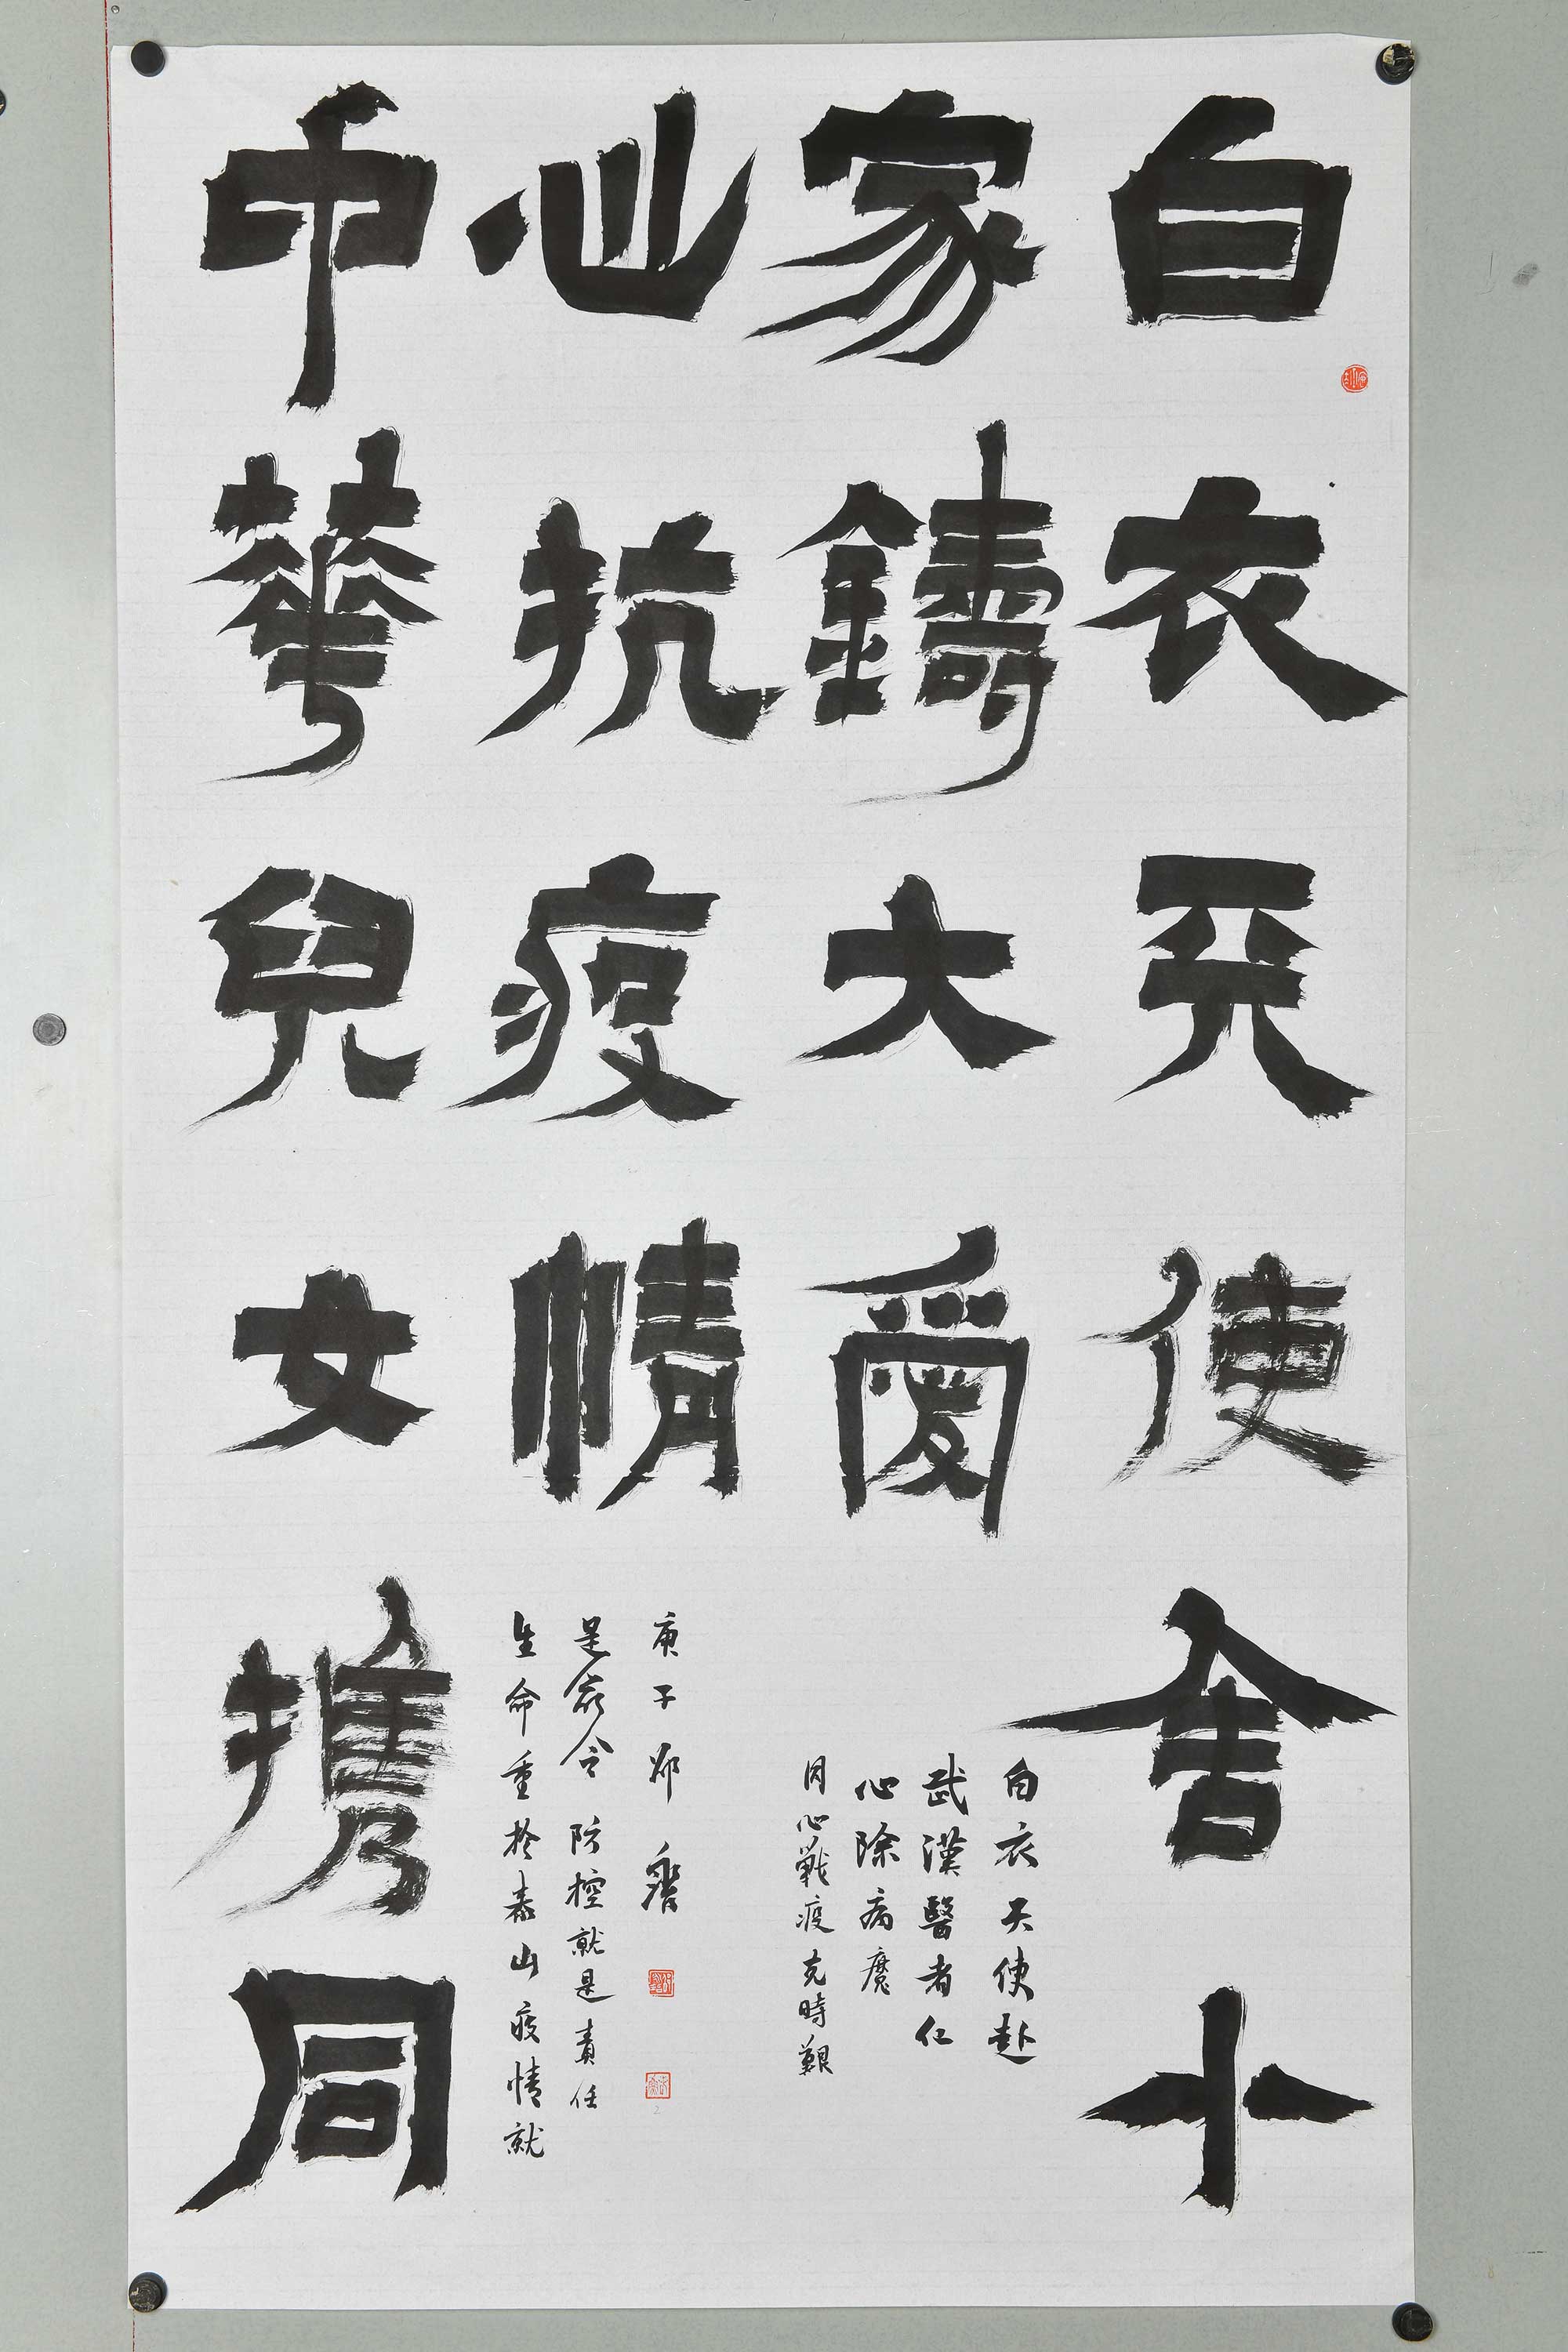 白衣天使舍小
家鑄大愛
白衣天使赴
武漢醫者仁
心除病魔
同心戰疫克時艱
中華兒女携同
心抗疫情
生命重於泰山疫情就
是命令防控就是責任
庚子